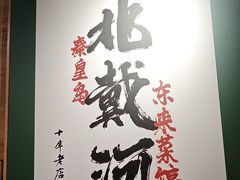 秦皇岛
北戴河
东来菜馆
十年老店